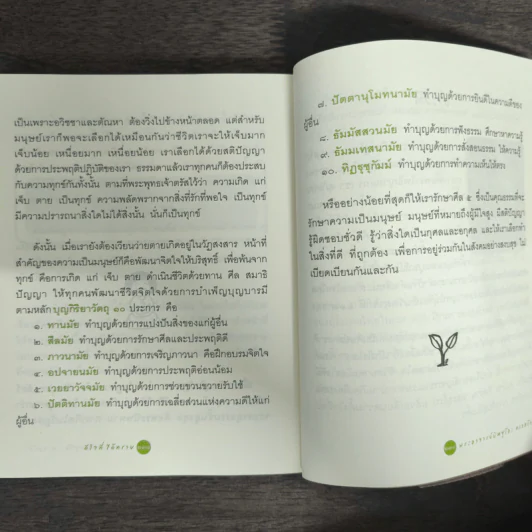 เป็นเพราะอวิชชาและตัณหา ต้องวิ่งไปข้างหน้าตลอด แต่สำหรับ
มนุษย์เราก็พอจะเลือกได้เหมือนกันว่าชีวิตเราจะให้เจ็บมาก
เจ็บน้อย เหนื่อยมาก เหนื่อยน้อย เราเลือกได้ด้วยสติปัญญา
ด้วยการประพฤติปฏิบัติของเรา ธรรมดาแล้วเราทุกคนก็ต้องประสบ
กับความทุกข์กันทั้งนั้น ตามที่พระพุทธเจ้าตรัสไว้ว่า ความเกิด แก่
เจ็บ ตาย เป็นทุกข์ ความพลัดพรากจากสิ่งที่รักที่พอใจ เป็นทุกข์
มีความปรารถนาสิ่งใดไม่ได้สิ่งนั้น นั่นก็เป็นทุกข์
ดังนั้น เมื่อเรายังต้องเวียนว่ายตายเกิดอยู่ในวัฏสงสาร หน้าที่
สำคัญของความเป็นมนุษย์ก็คือพัฒนาจิตใจให้บริสุทธิ์ เพื่อพ้นจาก
ทุกข์ คือการเกิด แก่ เจ็บ ตาย ดำเนินชีวิตด้วยทาน ศีล สมาธิ
ปัญญา ให้ทุกคนพัฒนาชีวิตจิตใจด้วยการบำเพ็ญบุญบารมี
ตามหลัก บุญกิริยาวัตถุ ๑๐ ประการ คือ
๑. ทานมัย ทำบุญด้วยการแบ่งปันสิ่งของแก่ผู้อื่น
๒. สีลมัย ทำบุญด้วยการรักษาศีลและประพฤติดี
๓. ภาวนามัย ทำบุญด้วยการเจริญภาวนา คือฝึกอบรมจิตใจ
๔. อปจายนมัย ทำบุญด้วยการประพฤติอ่อนน้อม
๕. เวยยาวัจจมัย ทำบุญด้วยการช่วยขวนขวายรับใช้
๖. ปัตติทานมัย ทำบุญด้วยการเฉลี่ยส่วนแห่งความดีให้แก่
ผู้อื่น
๗. ปัตตานุโมทนามัย ทำบุญด้วยการยินดีในความดีของ
ผู้อื่น
๘. ธัมมัสสวนมัย ทำบุญด้วยการฟังธรรม ศึกษาหาความรู้
๙. ธัมมเทสนามัย ทำบุญด้วยการสั่งสอนธรรม ให้ความรู้
๑๐. ทิฏฐุชุกัมม์ ทำบุญด้วยการทำความเห็นให้ตรง
หรืออย่างน้อยที่สุดก็ให้เรารักษาศีล ๕ ซึ่งเป็นคุณธรรมที่จะ
รักษาความเป็นมนุษย์ มนุษย์ที่หมายถึงผู้มีใจสูง มีสติปัญญา
รู้ผิดชอบชั่วดี รู้ว่าสิ่งใดเป็นกุศลและอกุศล และให้เราเลือกทำ
ในสิ่งที่ดี ที่ถูกต้อง เพื่อการอยู่ร่วมกันในสังคมอย่างสงบสุข ไม่
เบียดเบียนกันและกัน